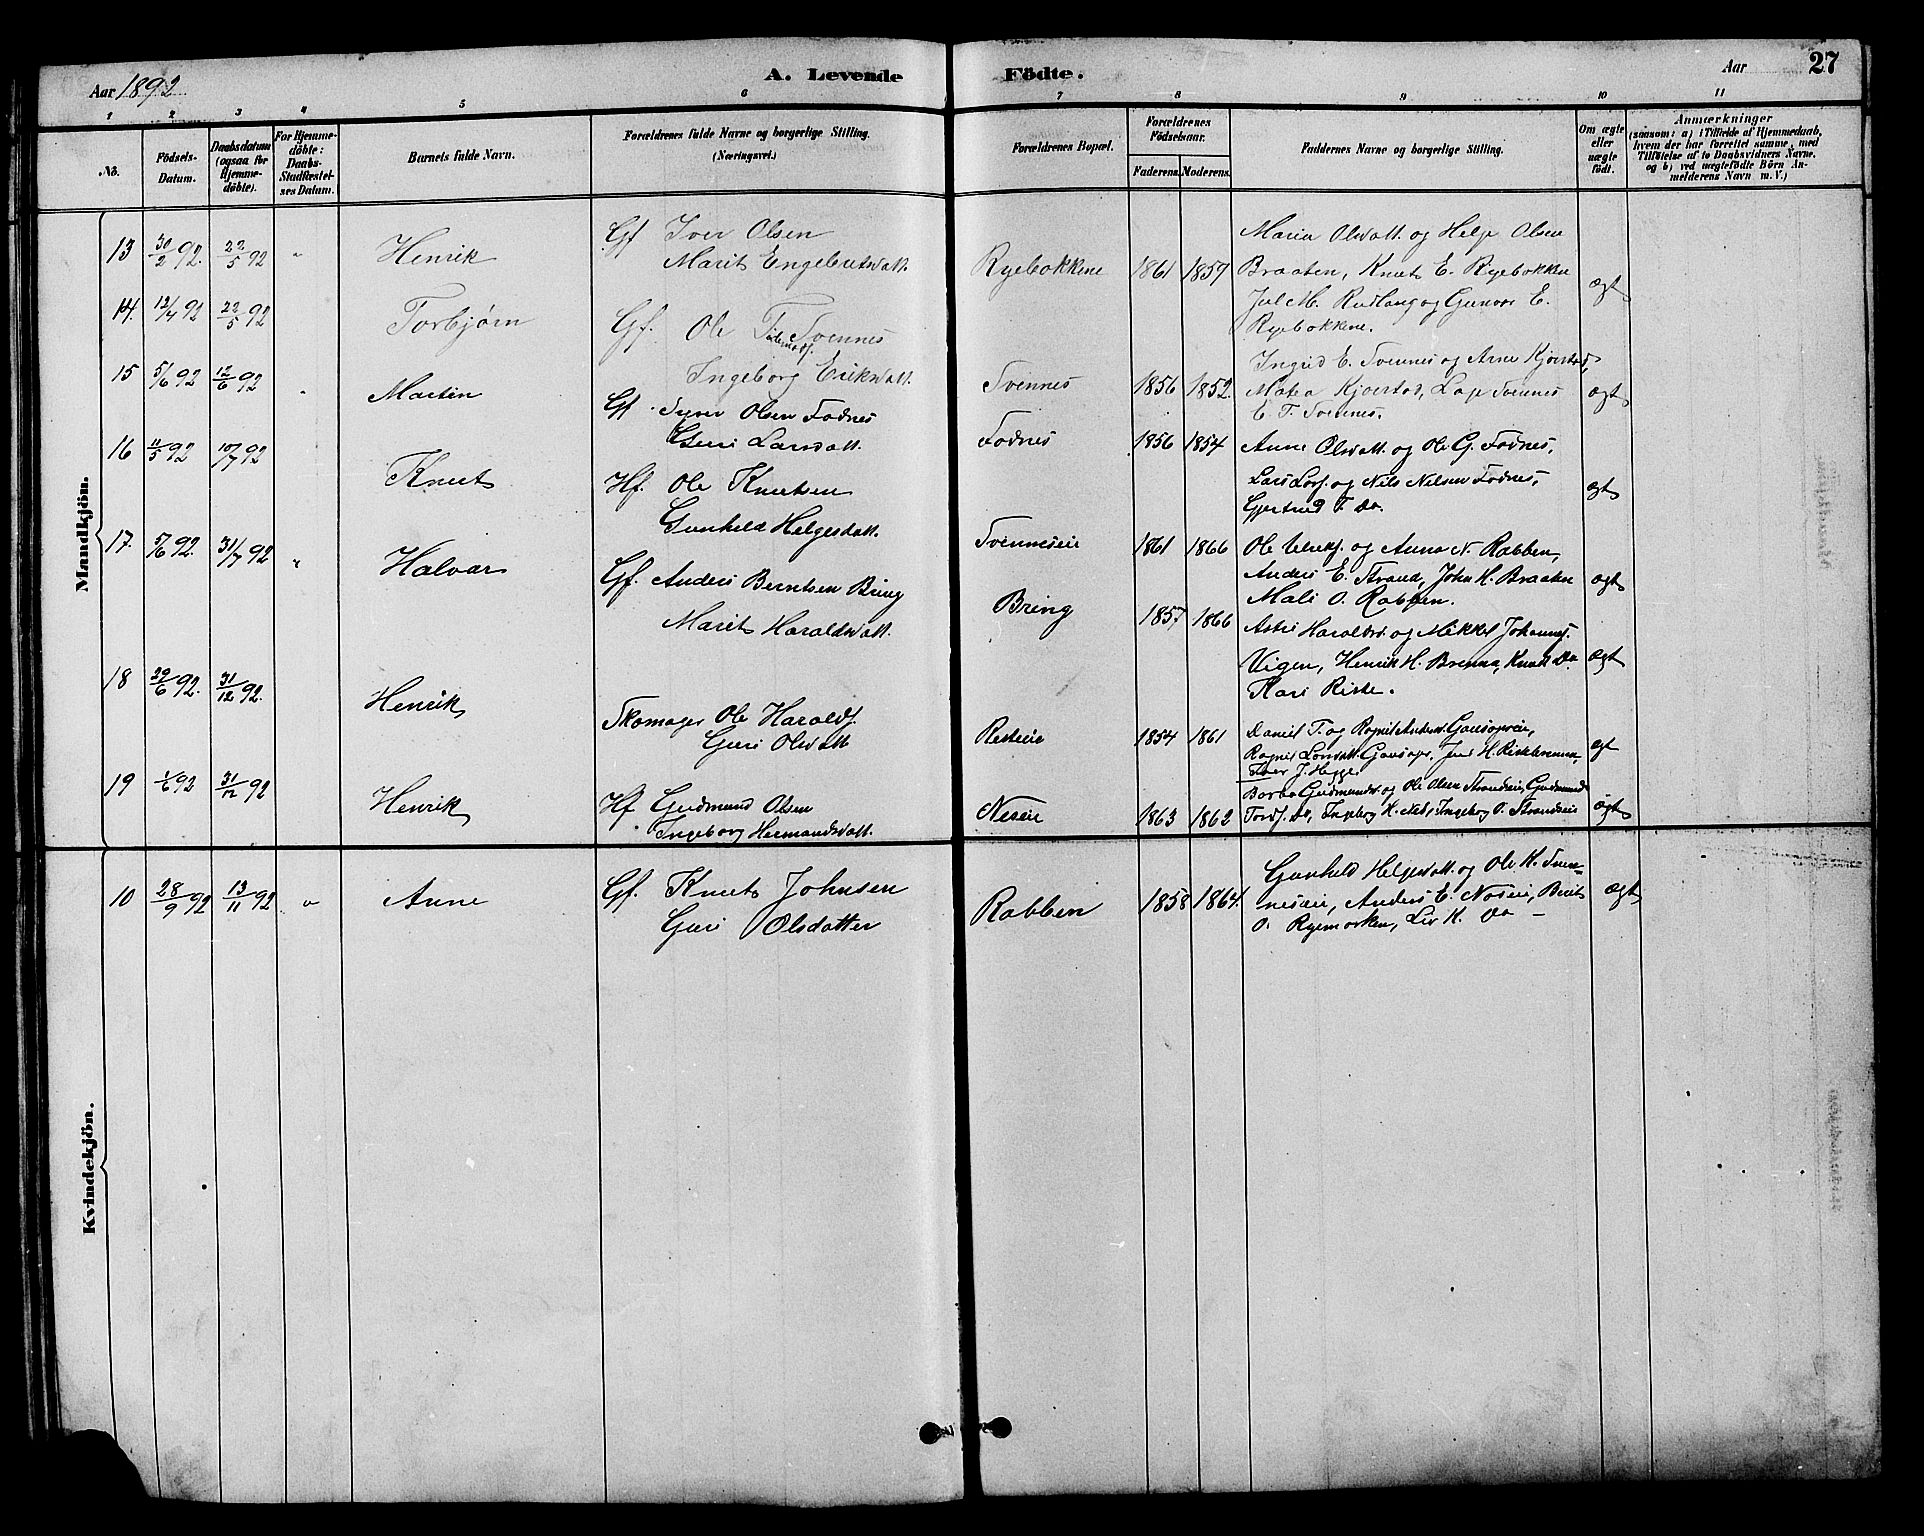 Aar 1892
A. Levende Födte.
Aar 27
1 2 3 4 5 6 7 8 9 10 11
No.
Födsels-
Datum.
Daabsdatum
(ogsaa for
Hjemme-
döbte).
For Hjemme-
döbte:
Daabs-
Stadfæstel-
ses Datum.
Barnets fulde Navn.
Forældrenes fulde Navne og borgerlige Stilling.
(Næringsvei.)
Forældrenes Bopæl.
Forældrenes
Födselsaar.
Faderens. Moderens.
Faddernes Navne og borgerlige Stilling.
Om ægte
eller
uægte
födt.
Anmærkninger
(saasom: a) i Tilfælde af Hjemmedaab,
hvem der har forrettet samme, med
Tilföielse af to Daabsvidners Navne,
og b) ved uægtefödte Börn An-
melderens Navn m. V.)
Mandkjön.
13 30/2 92. 22/5 92 " Henrik
Gf Iver Olsen
Marit Engebretsdatt.
Ryebakkene 1861 1857
Maria Olsdatt. og Helge Olsen
Braaten, Knut E. Ryebakken
Jul M. Rudlang og Gunvor E.
Ryebakkene.
ægt
14. 12/4 92 22/5 92 Torbjørn
Gf. Ole Tidemandsf. Svennes
Ingeborg Eriksdatt.
Svennes 1856 1852.
Ingrid E. Svennes og Arne Kjørstad,
Matea Kjørstad, Svennes
E. T. Svennes.
ægt
15 5/6 92 12/6 92 " Martin
Gf. Syver Olsen Fodnes
Guri Larsdatt.
Fodnes 1856 1854
Anne Olsdatt. og Ole G. Fodnes,
Lars Larsf. og Nils Nilsen Fodnes,
Gjertrud T. Do.
ægt
16 11/5 92 10/7 92 Knut
Hf. Ole Knutsen
Gunhild Helgesdatt.
Svenneseie 1861 1866
Ole Ulriksf. og Anna N. Rabben,
Anders E. Strand, John H. Braaten
Mali O. Rabben.
ægt
17. 5/6 92. 31/7 92 " Halvar
Gf. Anders Berntsen Bring
Marit Haraldsdatt.
Bring 1857 1866
Astri Haraldsd. og Mikkel Johannesf.
Vigen, Henrik H. Brenna, Knut Do
Kari Riste.
ægt
18 22/6 92. 31/12 92. Henrik
Skomager Ole Haraldsf.
Guri Olsdatt
Resteie 1854 1861
Daniel T. og Ragnil Andersd. Gausageie,
Ragnil Larsdatt. Gausage, H. Ristebrenna,
Iver J. Hegge
ægt
19 1/6 92 31/12 92 Henrik
Hf Gudmund Olsen
Ingeborg Hermandsdatt.
Neseie 1863 1862
Barbo Gudmundsd. og Ole Olsen Strandeie, Gudmund
Tordf. Do, Ingeborg H. Nes, Ingeborg O. Strandeie
ægt
Kvindekjön.
10 28/9 92 13/11 92 " Anne
Gf. Knut Johnsen
Guri Olsdatter
Rabben 1858 1864.
Gunhild Helgesdatt. og Ole K. Sven-
neseie, Anders E. Noseie, Berit
O. Ryemarken, Liv K. Do –
ægt